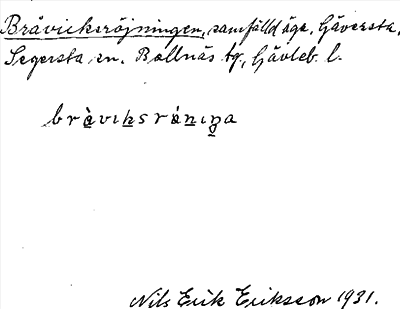 Bråvicksröjningen, samfälld äga, Gåversta,
Segersta sn. Bollnäs tg., Gävleb. l.
brà̱viḵsrá̱ṉiṉa
Nils Erik Eriksson 1931.